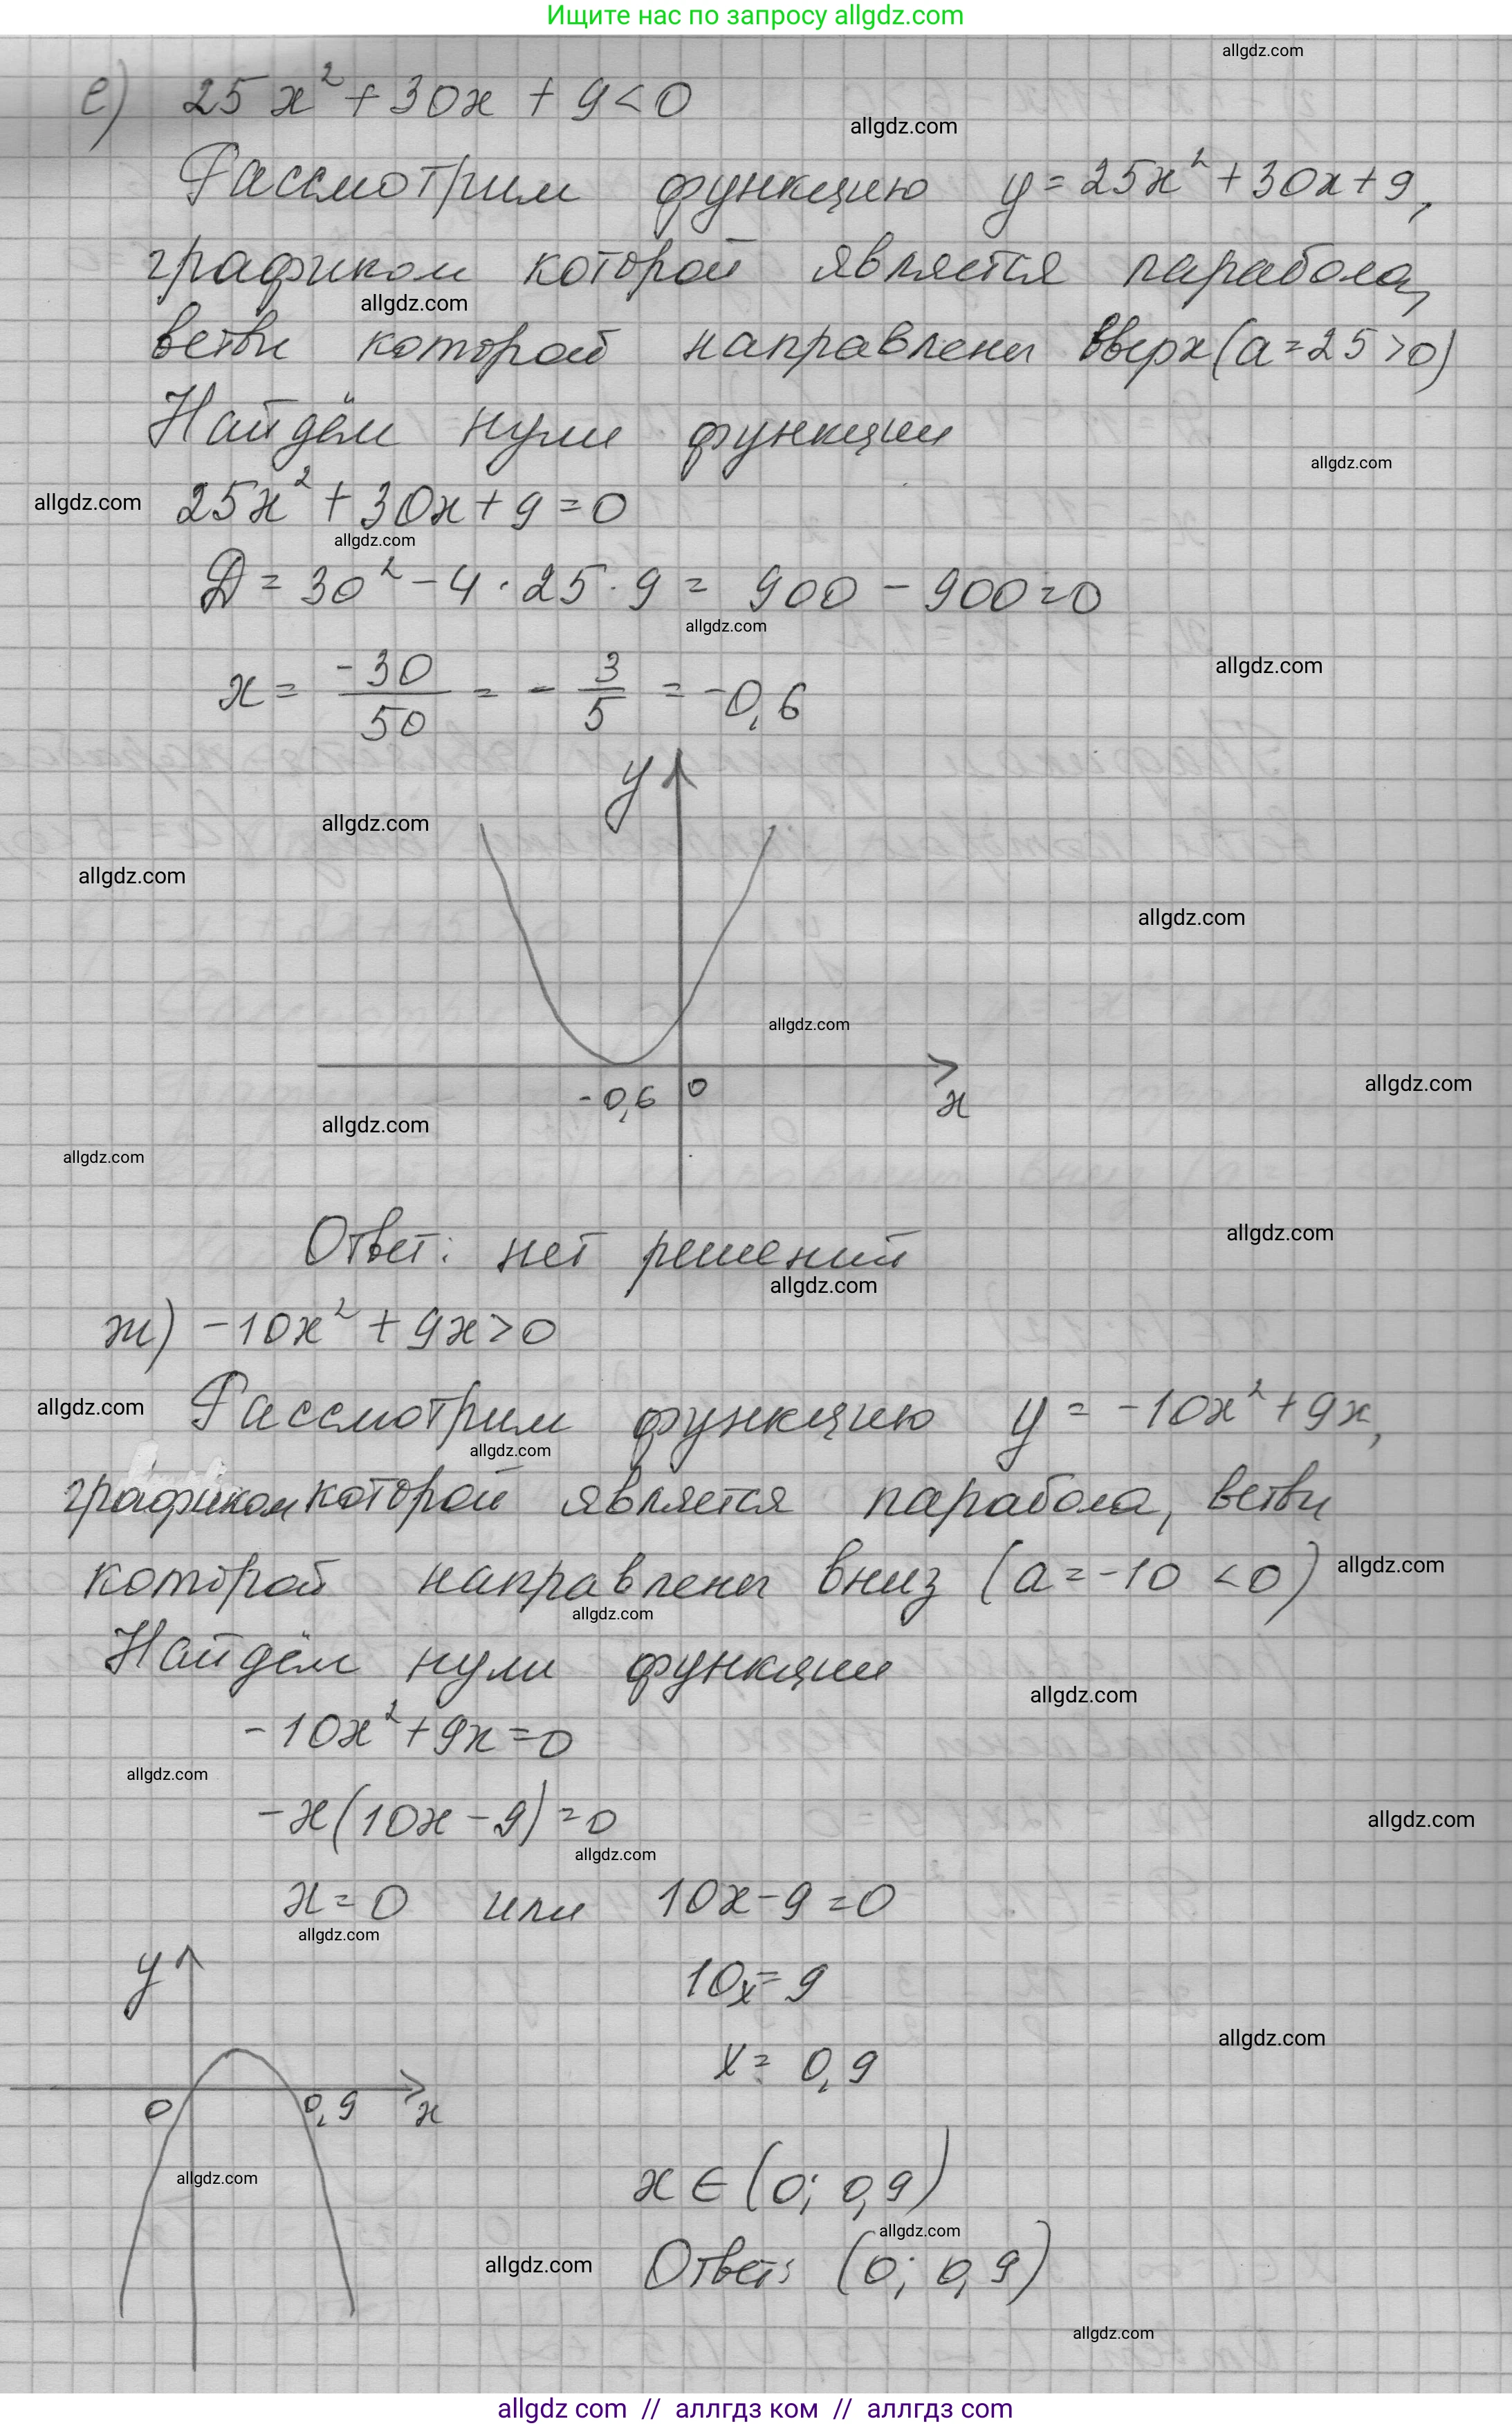 Ищите нас по запросу allgdz.com
allgdz.com
е) 25x² + 30x + 9 < 0
allgdz.com
Рассмотрим функцию y = 25x² + 30x + 9,
графиком которой является парабола,
allgdz.com
ветви которой направлены вверх (a = 25 > 0)
Найдём нули функции
allgdz.com
allgdz.com 25x² + 30x + 9 = 0
allgdz.com
Д = 30² - 4 · 25 · 9 = 900 - 900 = 0
allgdz.com
allgdz.com
x = -30/50 = - 3/5 = -0,6
y
allgdz.com
allgdz.com
allgdz.com
allgdz.com
-0,6 0 x
allgdz.com
allgdz.com
allgdz.com
Ответ: нет решений
allgdz.com
allgdz.com
ж) -10x² + 9x > 0
allgdz.com Рассмотрим функцию y = -10x² + 9x,
allgdz.com
графиком которой является парабола, ветви
которой направлены вниз (a = -10 < 0) allgdz.com
allgdz.com
Найдём нули функции
allgdz.com
-10x² + 9x = 0
allgdz.com
-x(10x - 9) = 0
allgdz.com
allgdz.com
x = 0 или 10x - 9 = 0
allgdz.com
y 10x = 9
allgdz.com
x = 0,9
0 0,9 x
allgdz.com
x ∈ (0; 0,9)
allgdz.com
allgdz.com Ответ: (0; 0,9)
allgdz.com
allgdz com // аллгдз ком // аллгдз com